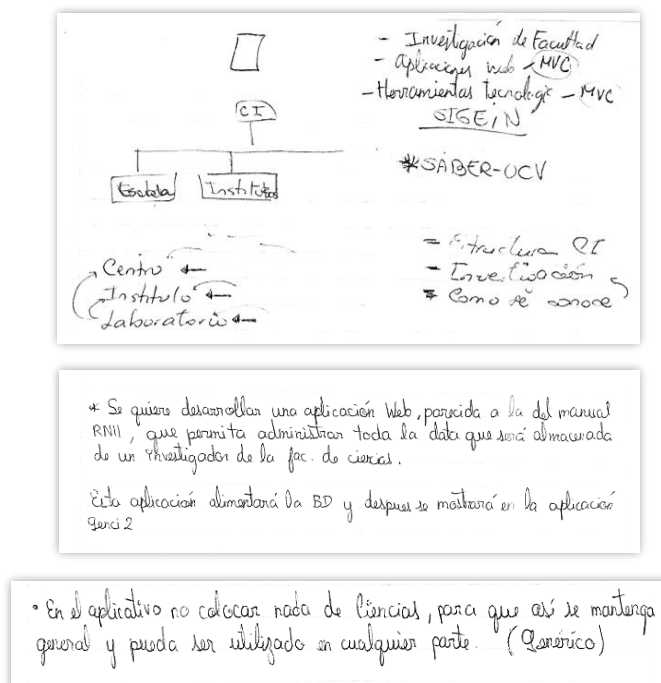 - Investigación de Facultad
- aplicaciones web - MVC
- Herramientas tecnologic - MVC
SIGEIN
CI
*SABER-UCV
Escuela Instituto
Centro
Instituto
Laboratorio
= Estructura CI
- Investigación
* Como se conoce
* Se quiere desarrollar una aplicación Web, parecida a la del manual
RNII, que permita administrar toda la data que será almacenada
de un investigador de la fac. de ciencias.
Esta aplicación alimentará la BD y despues se mostrará en la aplicación
genci2
• En el aplicativo no colocar nada de Ciencias, para que así se mantenga
general y pueda ser utilizado en cualquier parte. (Genérico)